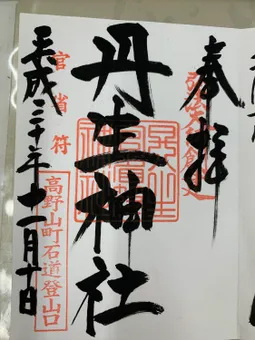 奉拝
丹生神社
官省符
平成三十年十一月十日
高野山町石道登山口